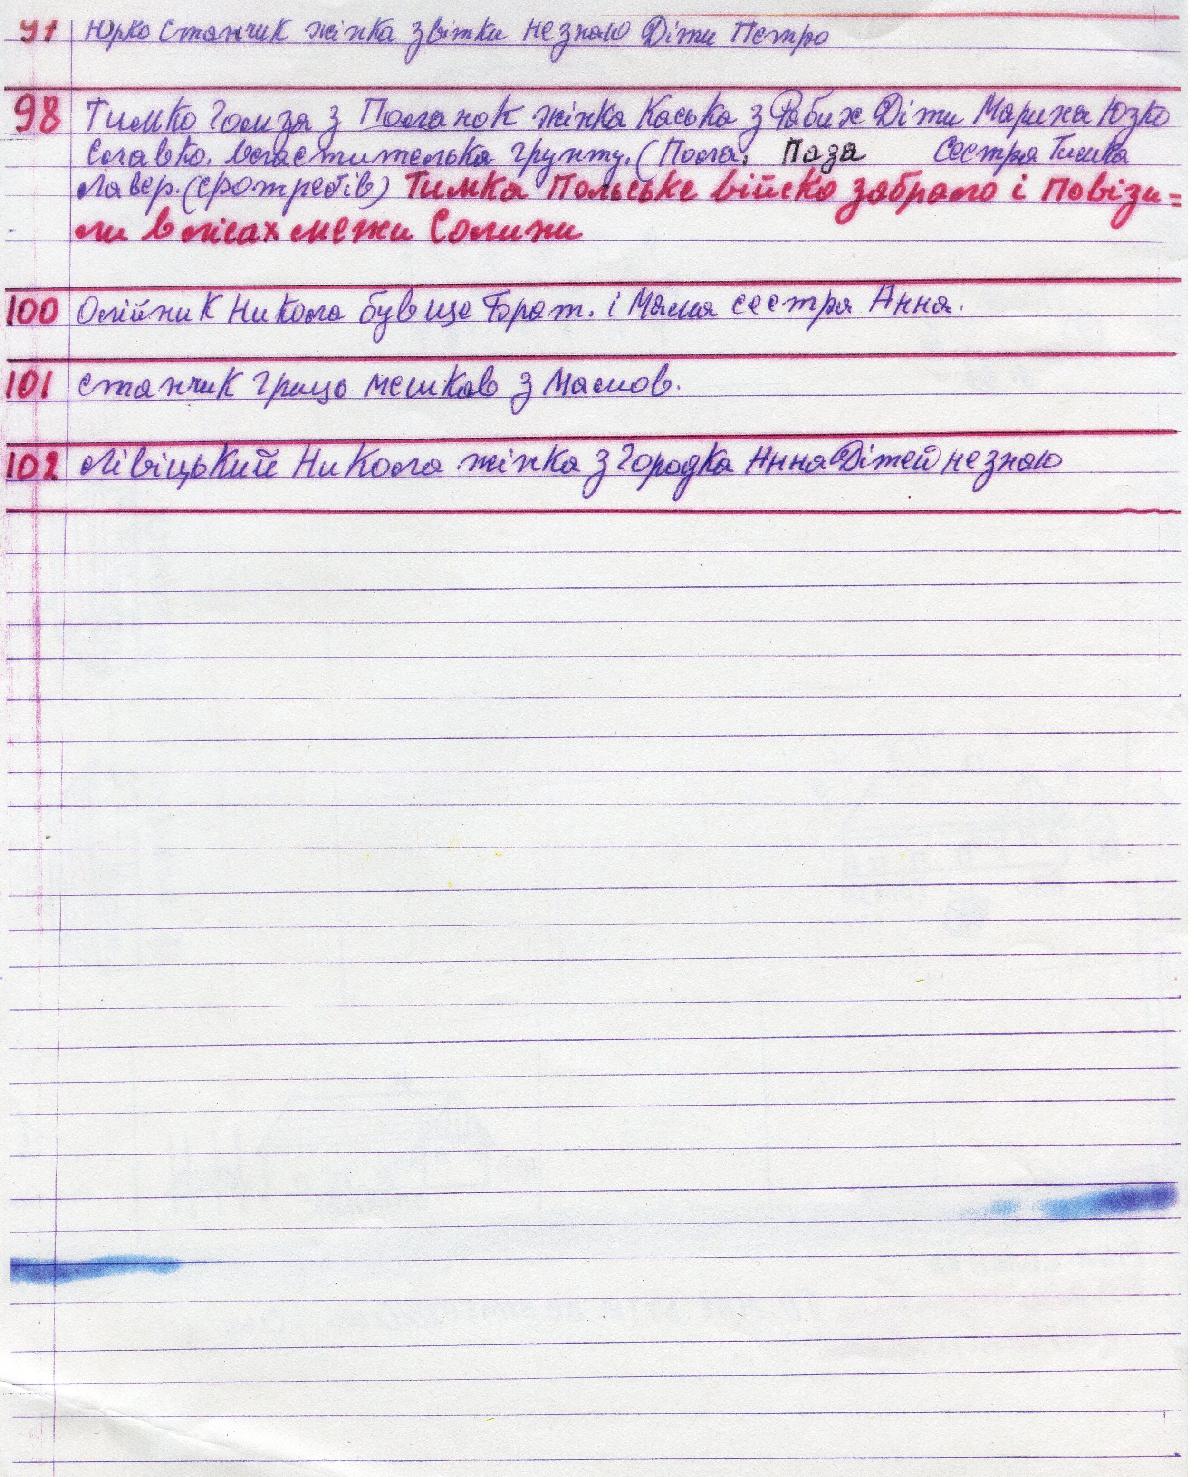 97 Юрко Станчик жінка звітки незнаю Діти Петро
98 Тимко Голиза з Поланок жінка Каська з Рабих Діти Марина Юзко
Славко. власитителька грунту. (Пола. Паза Сестра Тимка
Лавер. Тимка Польське війско забрало і повізи=
ли в лісах межи Солини
100 Олійник Никола був ще брат. і Мала сестря Анна.
101 Станчик Грицо мешкав з Мамов.
102 Лівіцький Никола жінка з Городка Анна Дітей незнаю